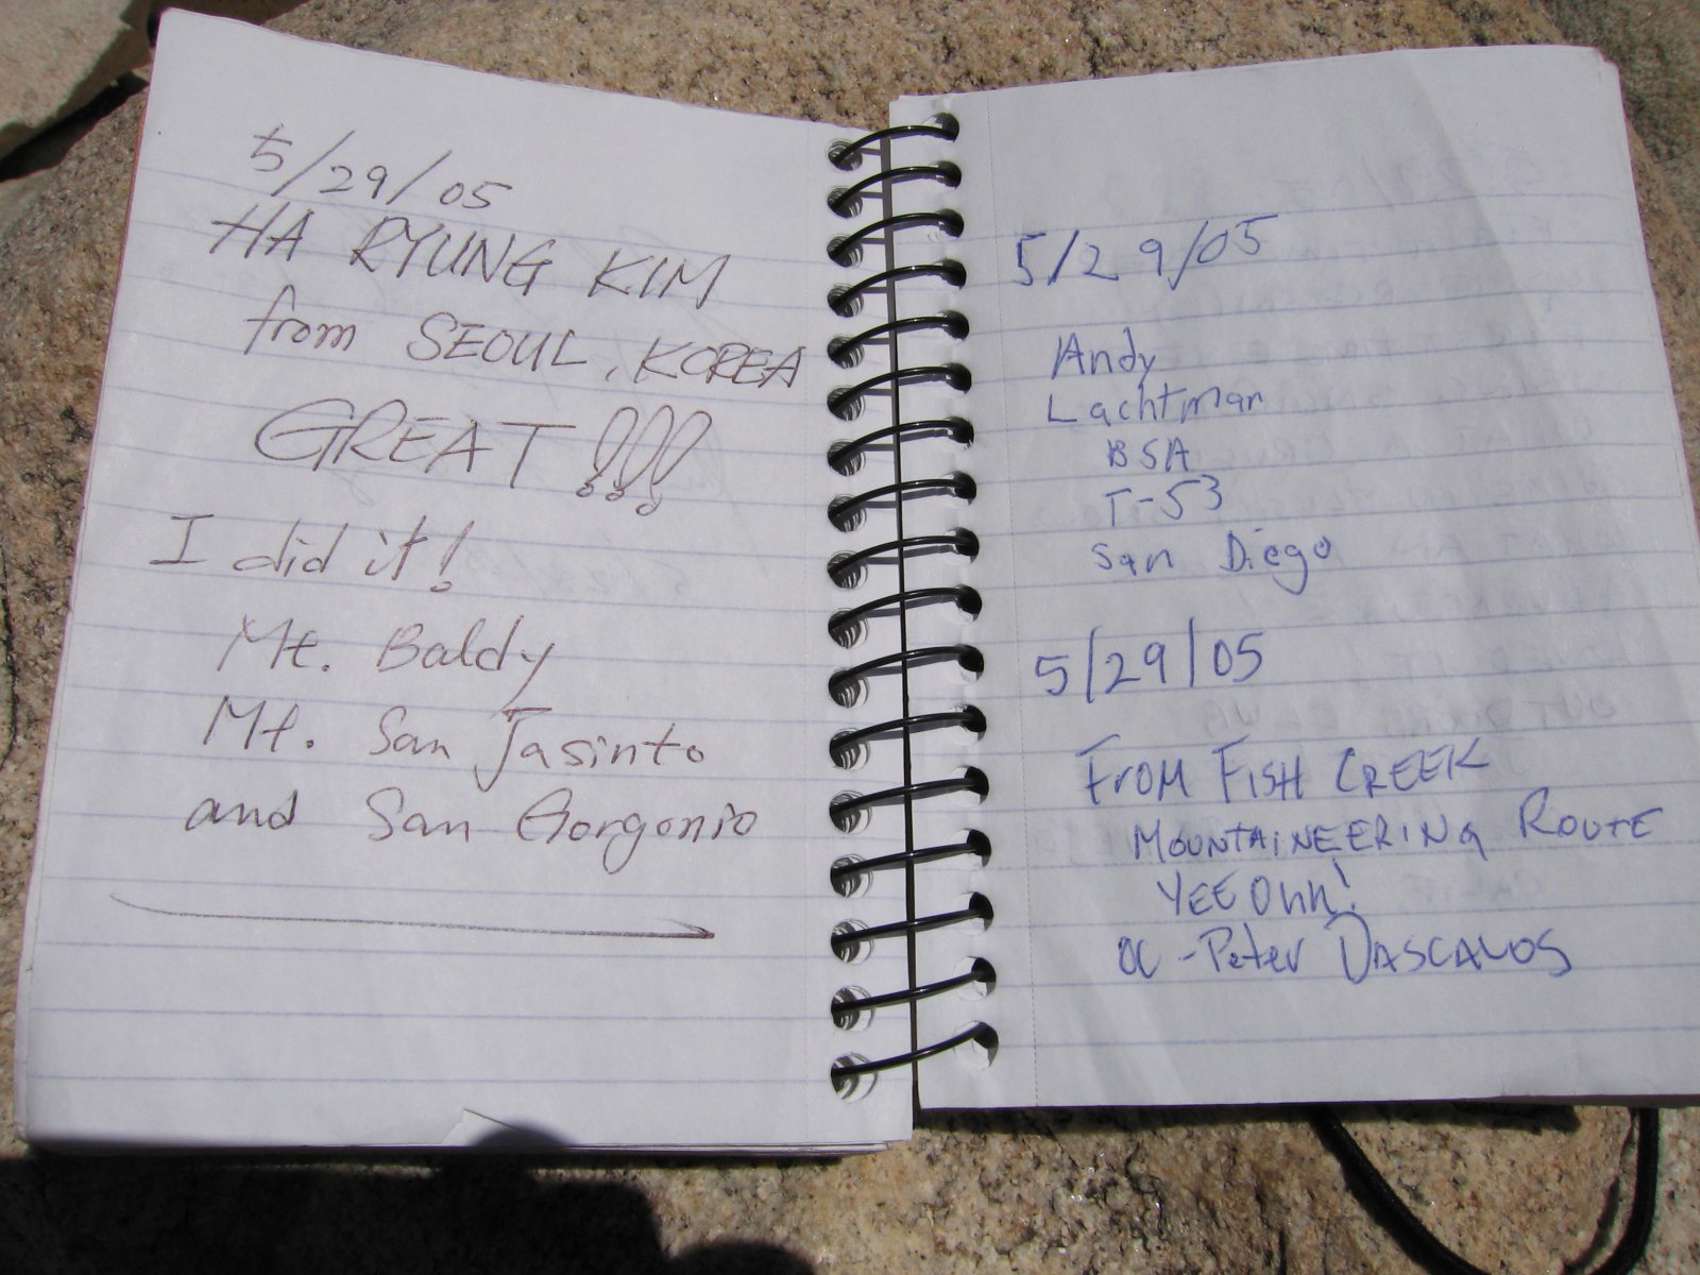 5/29/05
HA RYUNG KIM
from SEOUL, KOREA
GREAT!!!
I did it!
Mt. Baldy
Mt. San Jasinto
and San Gorgonio
5/29/05
Andy
Lachtman
BSA
T-53
San Diego
5/29/05
FROM FISH CREEK
MOUNTAINEERING ROUTE
YEE Ohh!
OC - Peter DASCALOS